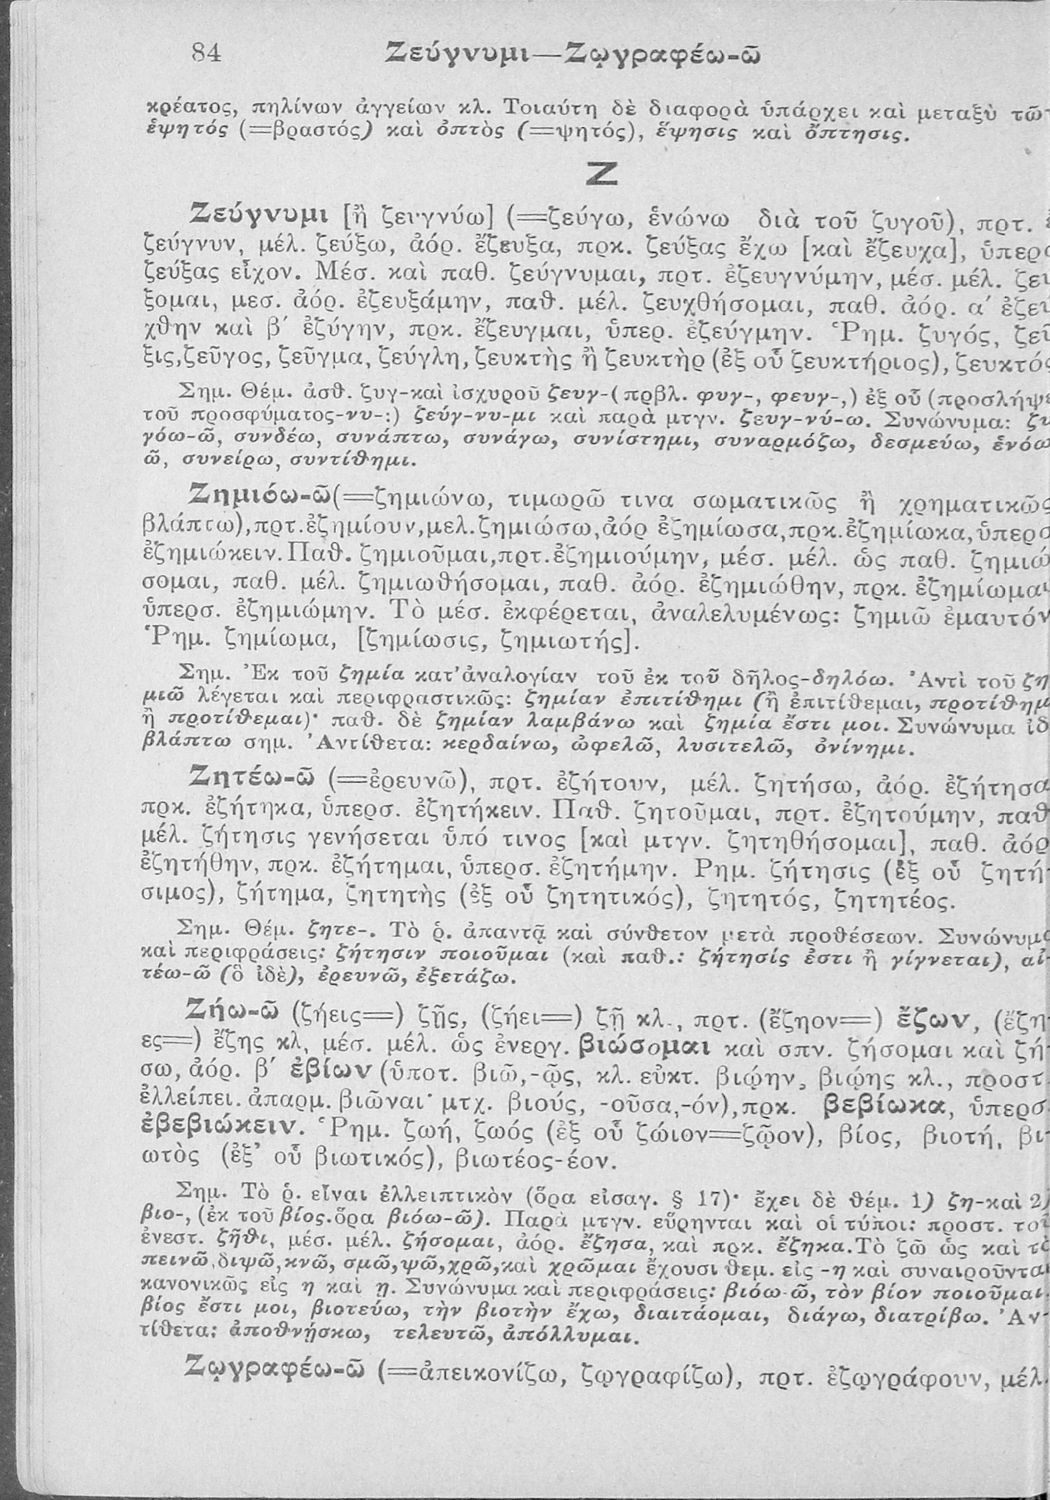 84 Ζεύγνυμι—Ζῳγραφέω-ῶ
κρέατος, πηλίνων ἀγγείων κλ. Τοιαύτη δὲ διαφορὰ ὑπάρχει καὶ μεταξὺ τῶ
ἑψητός (=βραστός) καὶ ὀπτὸς (=ψητός), ἕψησις καὶ ὄπτησις.
Ζ
Ζεύγνυμι [ἢ ζευγνύω] (=ζεύγω, ἑνώνω διὰ τοῦ ζυγοῦ), πρτ.
ζεύγνυν, μέλ. ζεύξω, ἀόρ. ἔζευξα, πρκ. ζεύξας ἔχω [καὶ ἔζευχα], ὑπερ
ζεύξας εἶχον. Μέσ. καὶ παθ. ζεύγνυμαι, πρτ. ἐζευγνύμην, μέσ. μέλ. ζε
ξομαι, μεσ. ἀόρ. ἐζευξάμην, παθ. μέλ. ζευχθήσομαι, παθ. ἀόρ. α′ ἐζε
χθην καὶ β′ ἐζύγην, πρκ. ἔζευγμαι, ὑπερ. ἐζεύγμην. Ῥημ. ζυγός, ζεῦ
ξις,ζεῦγος, ζεῦγμα, ζεύγλη, ζευκτὴς ἢ ζευκτὴρ (ἐξ οὗ ζευκτήριος), ζευκτό
Σημ. Θέμ. ἀσθ. ζυγ-καὶ ἰσχυροῦ ζευγ-(πρβλ. φυγ-, φευγ-,) ἐξ οὗ (προσλήψ
τοῦ προσφύματος-νυ-:) ζεύγ-νυ-μι καὶ παρὰ μτγν. ζευγ-νύ-ω. Συνώνυμα: ζ
γόω-ῶ, συνδέω, συνάπτω, συνάγω, συνίστημι, συναρμόζω, δεσμεύω, ἑνόω
ῶ, συνείρω, συντίθημι.
Ζημιόω-ῶ(=ζημιώνω, τιμωρῶ τινα σωματικῶς ἢ χρηματικῶς
βλάπτω),πρτ.ἐζημίουν,μελ.ζημιώσω,ἀόρ ἐζημίωσα,πρκ.ἐζημίωκα,ὑπερσ
ἐζημιώκειν.Παθ. ζημιοῦμαι,πρτ.ἐζημιούμην, μέσ. μέλ. ὡς παθ. ζημιώ
σομαι, παθ. μέλ. ζημιωθήσομαι, παθ. ἀόρ. ἐζημιώθην, πρκ. ἐζημίωμα
ὑπερσ. ἐζημιώμην. Τὸ μέσ. ἐκφέρεται, ἀναλελυμένως: ζημιῶ ἐμαυτόν
Ῥημ. ζημίωμα, [ζημίωσις, ζημιωτής].
Σημ. Ἐκ τοῦ ζημία κατ'ἀναλογίαν τοῦ ἐκ τοῦ δῆλος-δηλόω. Ἀντὶ τοῦ ζη
μιῶ λέγεται καὶ περιφραστικῶς: ζημίαν ἐπιτίθημι (ἢ ἐπιτίθεμαι, προτίθημ
ἢ προτίθεμαι)· παθ. δὲ ζημίαν λαμβάνω καὶ ζημία ἔστι μοι. Συνώνυμα ἰδ
βλάπτω σημ. Ἀντίθετα: κερδαίνω, ὠφελῶ, λυσιτελῶ, ὀνίνημι.
Ζητέω-ῶ (=ἐρευνῶ), πρτ. ἐζήτουν, μέλ. ζητήσω, ἀόρ. ἐζήτησα
πρκ. ἐζήτηκα, ὑπερσ. ἐζητήκειν. Παθ. ζητοῦμαι, πρτ. ἐζητούμην, παθ
μέλ. ζήτησις γενήσεται ὑπό τινος [καὶ μτγν. ζητηθήσομαι], παθ. ἀόρ
ἐζητήθην, πρκ. ἐζήτημαι, ὑπερσ. ἐζητήμην. Ρημ. ζήτησις (ἐξ οὗ ζητή
σιμος), ζήτημα, ζητητὴς (ἐξ οὗ ζητητικός), ζητητός, ζητητέος.
Σημ. Θέμ. ζητε-. Τὸ ῥ. ἀπαντᾷ καὶ σύνθετον μετὰ προθέσεων. Συνώνυμ
καὶ περιφράσεις: ζήτησιν ποιοῦμαι (καὶ παθ.: ζήτησίς ἐστι ἢ γίγνεται), αἰ
τέω-ῶ (ὃ ἰδὲ), ἐρευνῶ, ἐξετάζω.
Ζήω-ῶ (ζήεις=) ζῇς, (ζήει=) ζῇ κλ., πρτ. (ἔζηον=) ἔζων, (ἔζη
ες=) ἔζης κλ, μέσ. μέλ. ὡς ἐνεργ. βιώσομαι καὶ σπν. ζήσομαι καὶ ζή
σω, ἀόρ. β′ ἐβίων (ὑποτ. βιῶ,-ῷς, κλ. εὐκτ. βιῴην, βιῴης κλ., προστ
ἐλλείπει. ἀπαρμ. βιῶναι· μτχ. βιούς, -οῦσα,-όν),πρκ. βεβίωκα, ὑπερσ
ἐβεβιώκειν. Ῥημ. ζωή, ζωός (ἐξ οὗ ζώιον=ζῷον), βίος, βιοτή, βι
ωτὸς (ἐξ' οὗ βιωτικός), βιωτέος-έον.
Σημ. Τὸ ῥ. εἶναι ἐλλειπτικὸν (ὅρα εἰσαγ. § 17)· ἔχει δὲ θέμ. 1) ζη-καὶ 2)
βιο-, (ἐκ τοῦ βίος.ὅρα βιόω-ῶ). Παρὰ μτγν. εὕρηνται καὶ οἱ τύποι: προστ. το
ἐνεστ. ζῆθι, μέσ. μέλ. ζήσομαι, ἀόρ. ἔζησα, καὶ πρκ. ἔζηκα.Τὸ ζῶ ὡς καὶ τὰ
πεινῶ,διψῶ,κνῶ, σμῶ,ψῶ,χρῶ,καὶ χρῶμαι ἔχουσι θεμ. εἰς -η καὶ συναιροῦντα
κανονικῶς εἰς η καὶ ῃ. Συνώνυμα καὶ περιφράσεις: βιόω-ῶ, τὸν βίον ποιοῦμαι
βίος ἔστι μοι, βιοτεύω, τὴν βιοτὴν ἔχω, διαιτάομαι, διάγω, διατρίβω. Ἀν
τίθετα: ἀποθνῄσκω, τελευτῶ, ἀπόλλυμαι.
Ζῳγραφέω-ῶ (=ἀπεικονίζω, ζῳγραφίζω), πρτ. ἐζῳγράφουν, μέλ.